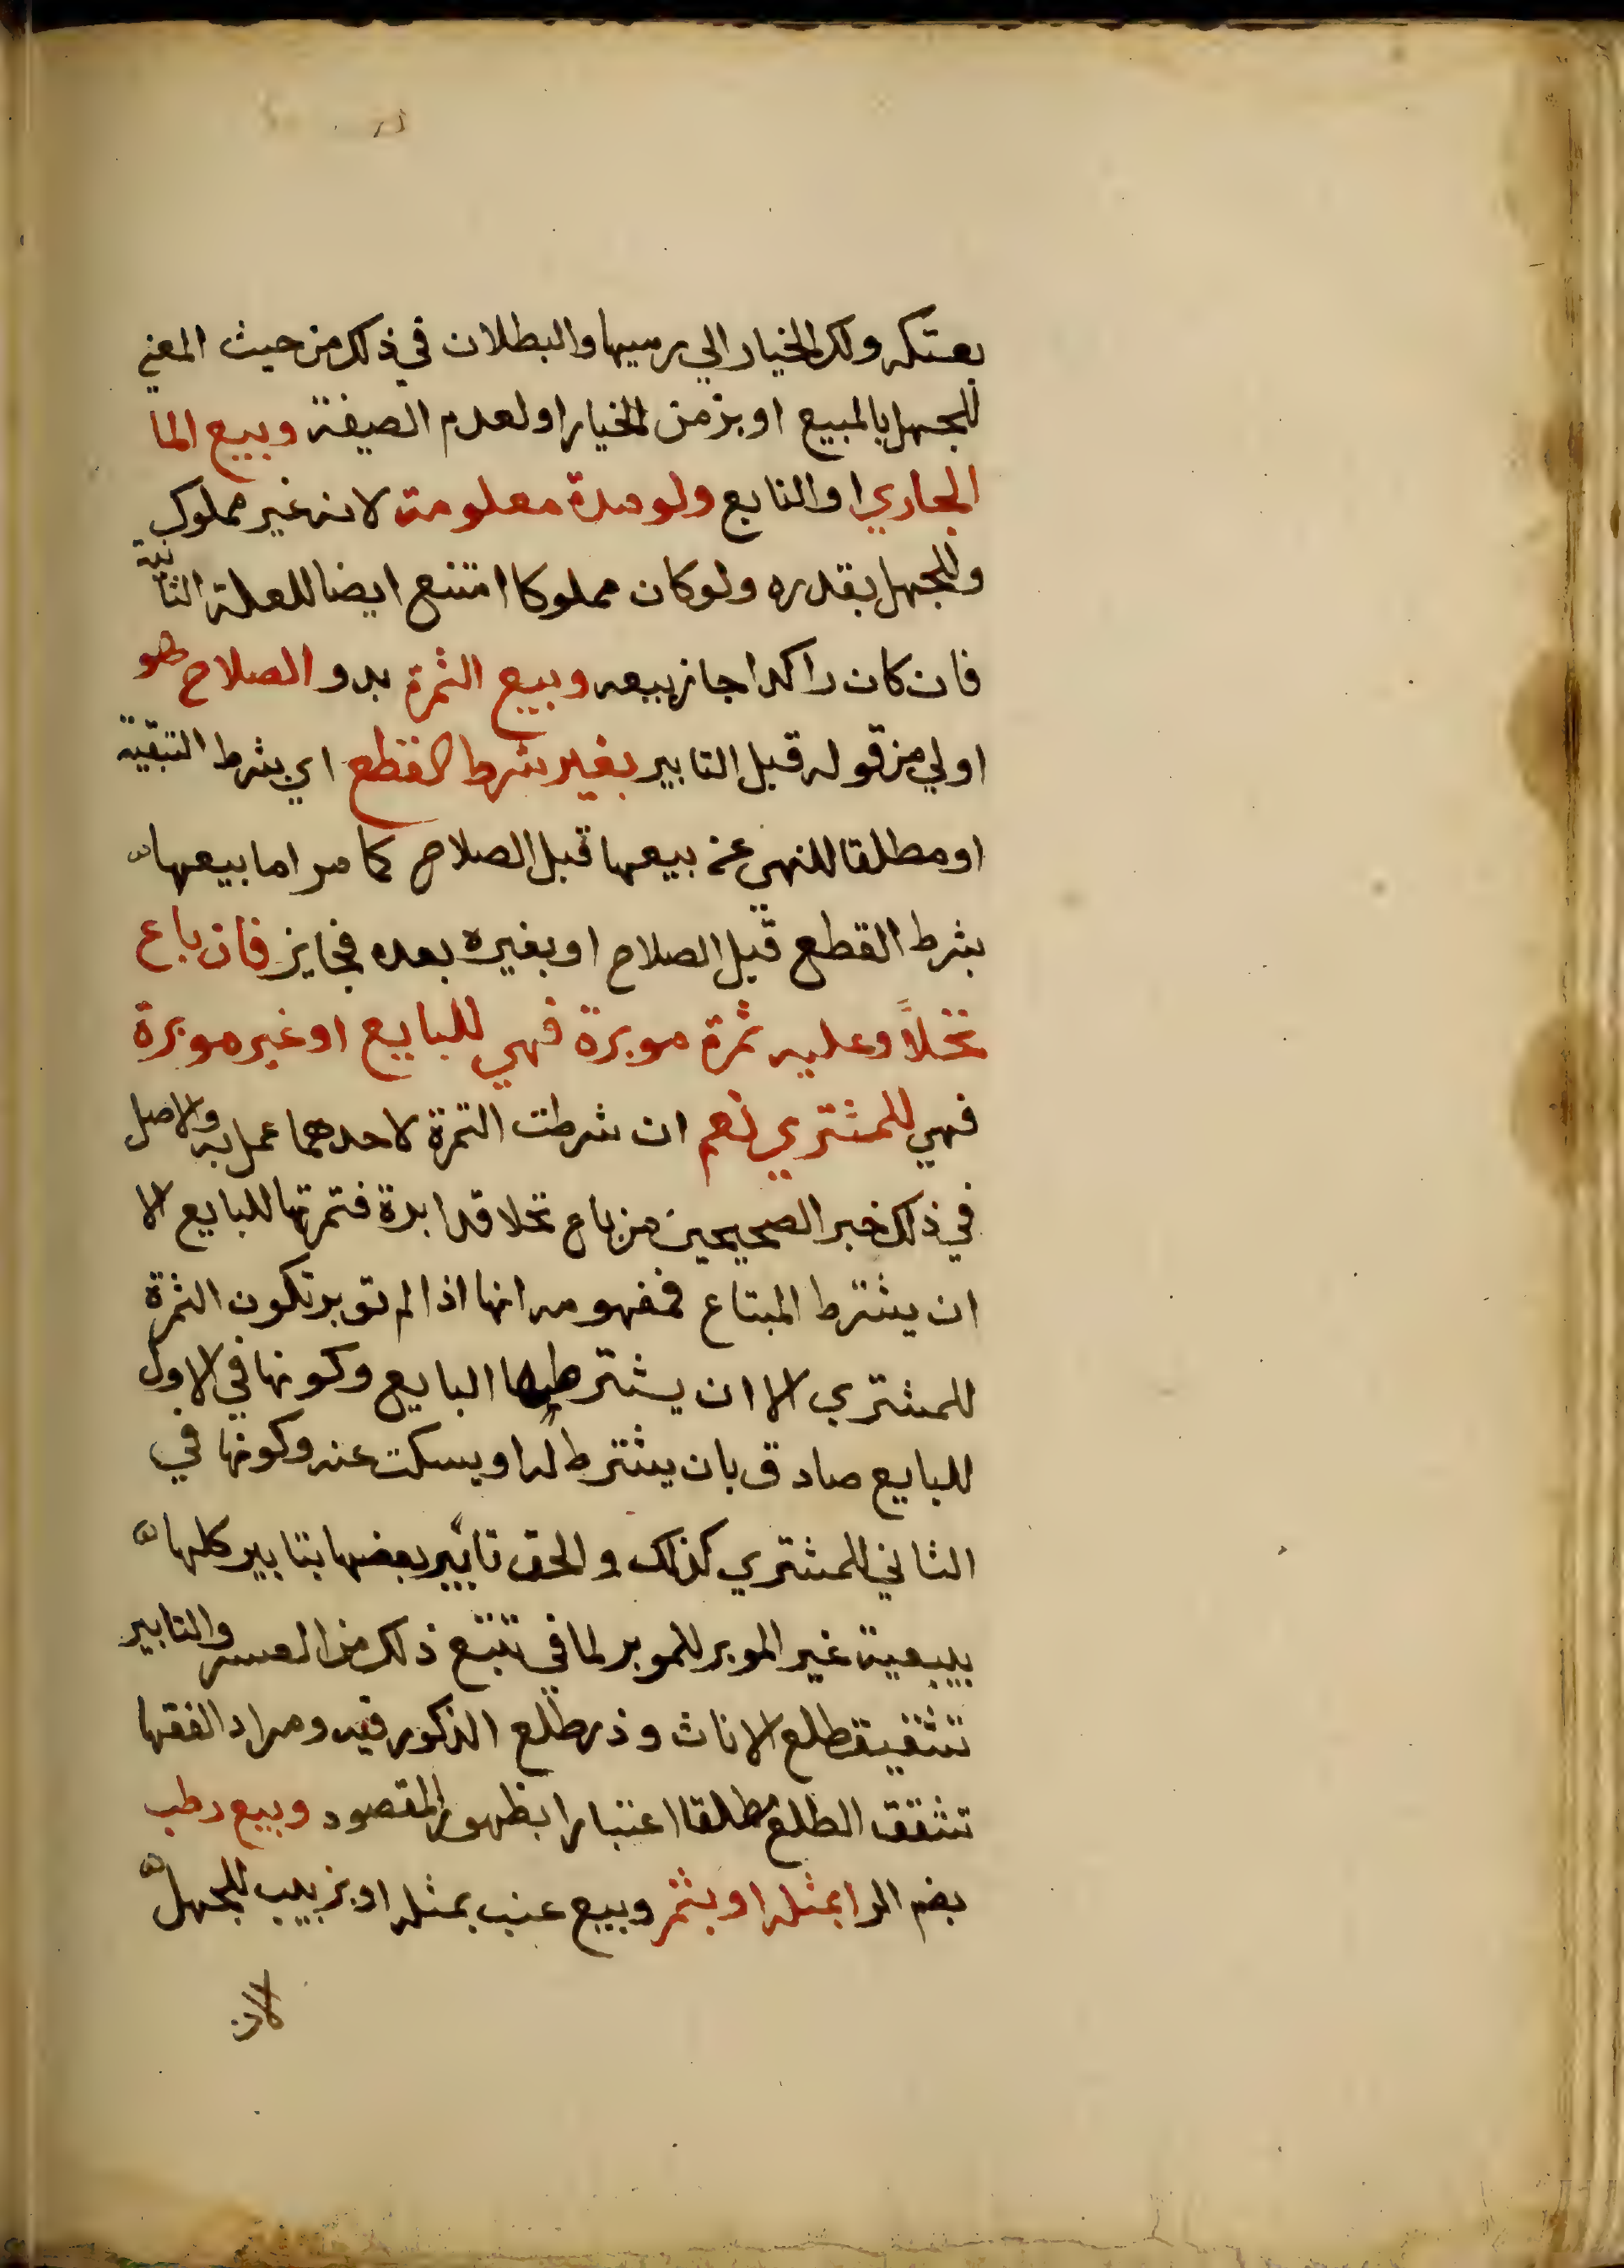 بعتكه ولك الخيار الي رميها والبطلان في ذلك من حيث المعني
للجهل بالمبيع او بزمن الخيار او لعدم الصيغة وبيع الما
الجاري او النابع ولو مدة معلومة لانه غير مملوك
وللجهل بقدره ولو كان مملوكا امتنع ايضا للعلة الثانية
فان كان راكدا جاز بيعه وبيع الثمرة بدو الصلاح هو
اولي من قوله قبل التابير بغير شرط القطع اي بشرط التبقية
او مطلقا للنهي عن بيعها قبل الصلاح كما مر اما بيعها
بشرط القطع قبل الصلاح او بغيره بعده فجايز فان باع
نخلاً وعليه ثمرة موبرة فهي للبايع او غير موبرة
فهي للمشتري نعم ان شرطت الثمرة لاحدهما عمل به والاصل
في ذلك خبر الصحيحين من باع نخلا قد ابرة فثمرتها للبايع الا
ان يشترط المبتاع فمفهومه انها اذا لم توبر تكون الثمرة
للمشتري الا ان يشترطها البايع وكونها في الاول
للبايع صادق بان يشترط له او يسكت عنه وكونها في
الثاني للمشتري كذلك والحق تابير بعضها بتابير كلها
بتبعية غير الموبر للموبر لما في تتبع ذلك من العسر والتابير
تشقيق طلع الاناث وذر طلع الذكور فيه ومراد الفقها
تشقق الطلع مطلقا اعتبارا بظهور المقصود وبيع رطب
بضم الرا بمثله او بتمر وبيع عنب بمثله او بزبيب للجهل
لان